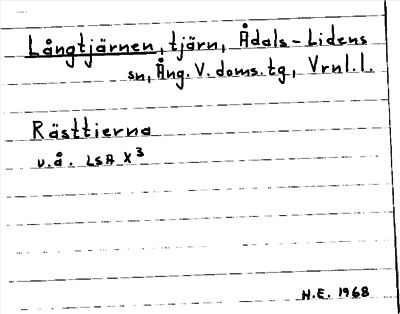 Långtjärnen, tjärn, Ådals-Lidens
sn, Ång. V. doms. tg, Vrnl.l.
Rästtierna
u.å. LSA X3
H.E. 1968